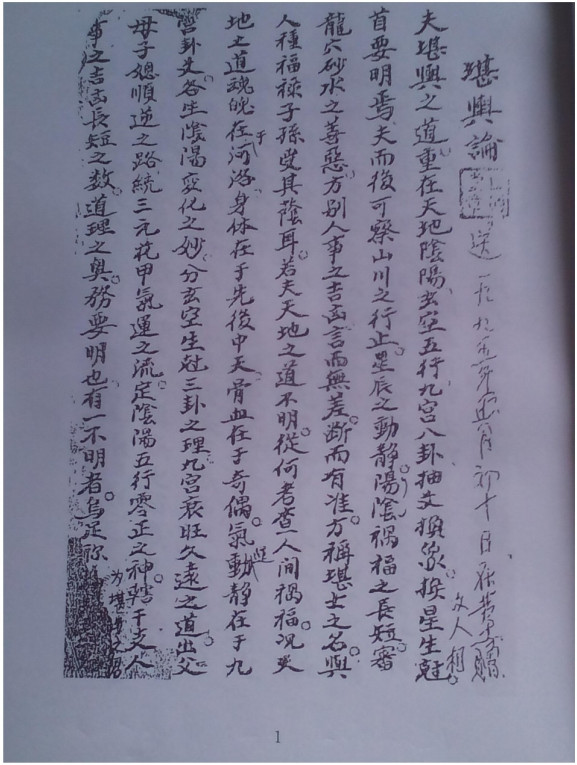 堪輿論
送 一九九五年 月初十日
夫堪輿之道重在天地陰陽玄空五行九宮八卦抽爻換象換星生尅
首要明焉夫而後可察山川之行止星辰之動靜陽陰禍福之長短審
龍穴砂水之善惡方別人事之吉凶言而無差斷而有准方稱堪士之名與
人種福祿子孫受其蔭耳若夫天地之道不明從何考查人间禍福況夫
地之道魂魄在于河洛身体在于先後中天骨血在于奇偶氣動静在于九
宮卦爻各生陰陽变化之妙分玄空生尅三卦之理九宮衰旺久遠之道出父
母子總順逆之路統三元花甲氣運之流定陰陽五行零正之神轄干支人
事之吉凶長短之数道理之奥務要明也有一不明者烏足称
为堪
1